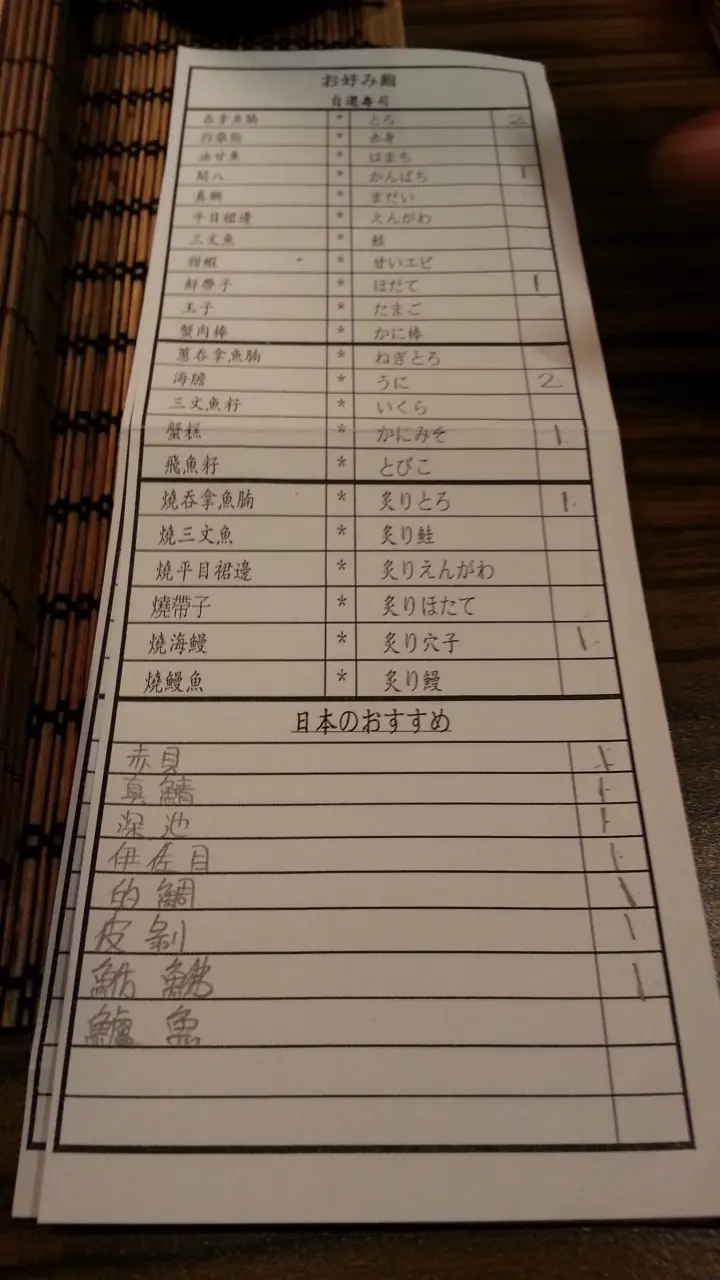 お好み鮨
自選壽司
吞拿魚腩 * とろ 2
* 赤身
油甘魚 * はまち
間八 * かんぱち 1
真鯛 * まだい
平目裙邊 * えんがわ
三文魚 * 鮭
甜蝦 * せいエビ
鮮帶子 * ほだて 1
玉子 * たまご
蟹肉棒 * かに棒
蔥吞拿魚腩 * ねぎとろ
海膽 * うに 2
三文魚籽 * いくら
蟹糕 * かにみそ 1
飛魚籽 * とびこ
燒吞拿魚腩 * 炙りとろ 1
燒三文魚 * 炙り鮭
燒平目裙邊 * 炙りえんがわ
燒帶子 * 炙りほたて
燒海鰻 * 炙り穴子 1
燒鰻魚 * 炙り鰻
日本のおすすめ
赤貝 1
真鯖 1
深池 1
伊佐目 1
的鯛 1
皮剝 1
1
鱸魚